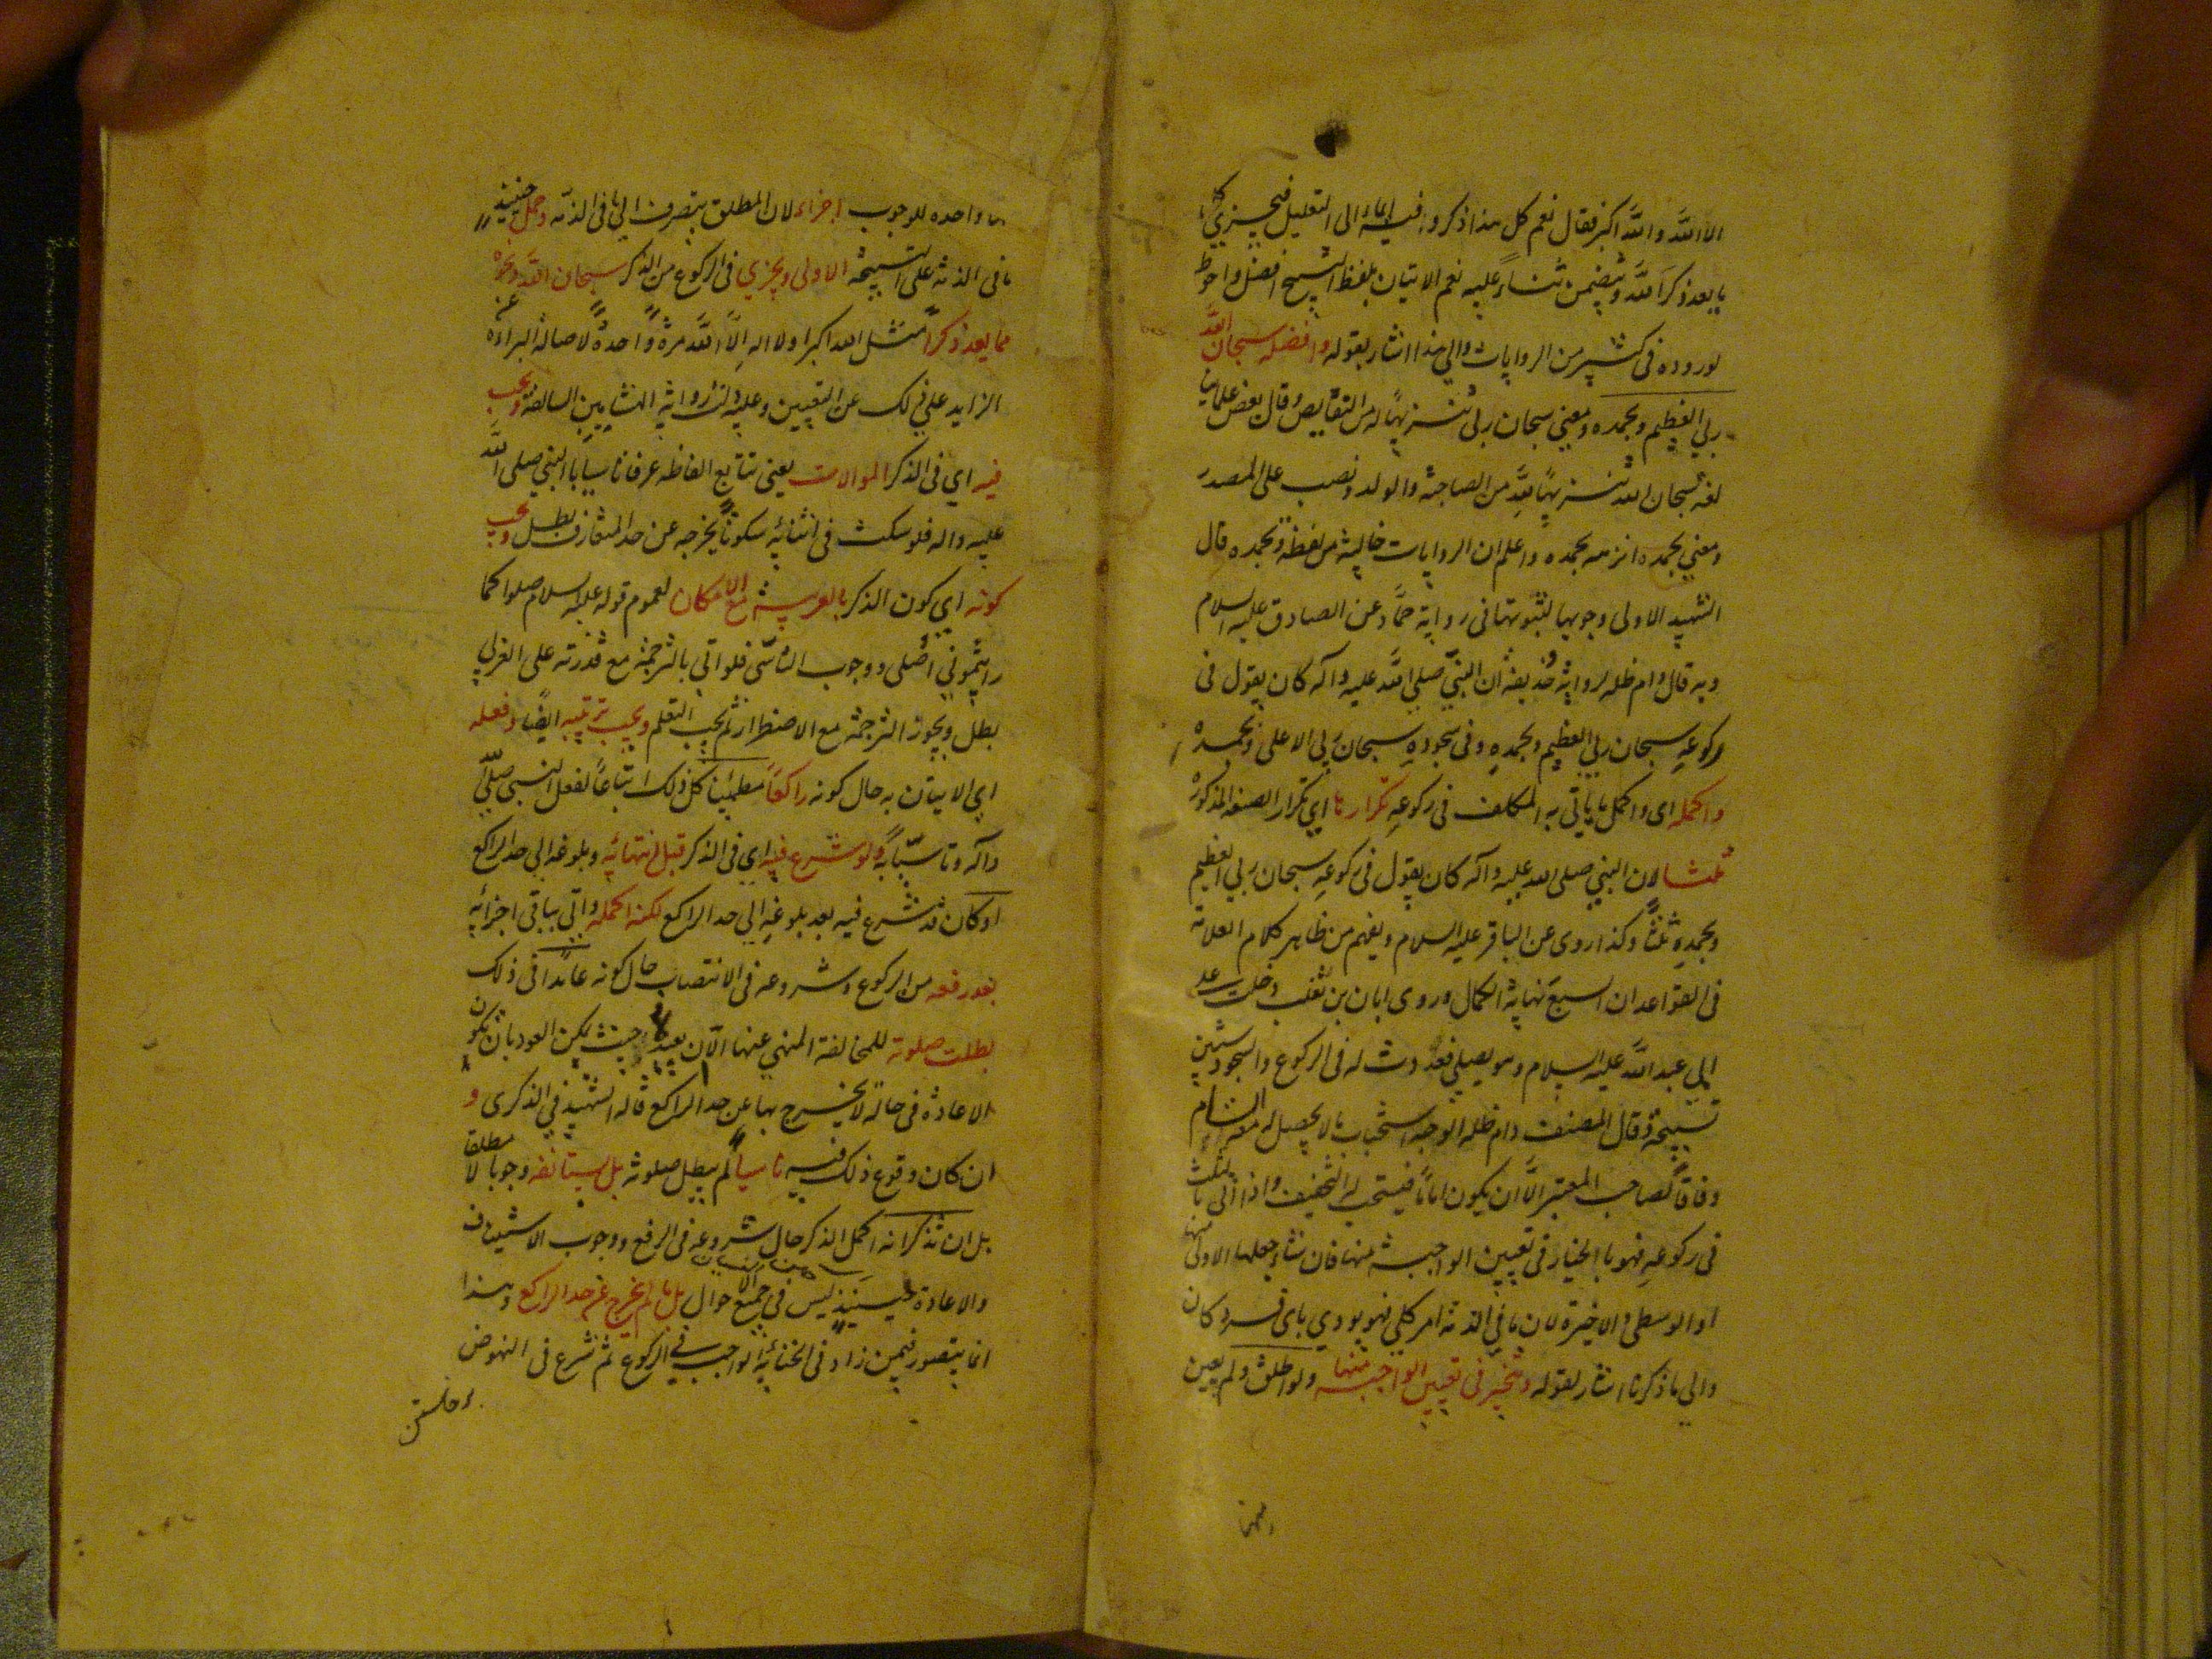 الا الله والله اكبر فقال نعم كل هذا ذكر و فيه ايماء الى التعليل فيجزي كل
ما يعد ذكرا لله ويتضمن ثناء عليه نعم الاتيان بلفظ التسبيح افضل واحوط
لوروده في كثير من الروايات والى هذا اشار بقوله وافضله سبحان الله
ربي العظيم وبحمده ومعنى سبحان ربي تنزيها له من النقايص وقال بعض علمائنا
لغة سبحان الله تنزيها لله من الصاحبة والولد ونصب على المصدر
ومعنى بحمده انزهه بحمده واعلم ان الروايات خالية من لفظة وبحمده قال
الشهيد الاولى وجوبها لثبوتها في رواية حماد عن الصادق عليه السلام
وبه قال دام ظله لرواية حذيفة ان النبي صلى الله عليه وآله كان يقول في
ركوعه سبحان ربي العظيم وبحمده وفي سجوده سبحان ربي الاعلى وبحمده
واكمله اي واكمل ما ياتي به المكلف في ركوعه تكرارنا اي تكرار الصيغة المذكورة
ثلثا لان النبي صلى الله عليه وآله كان يقول في ركوعه سبحان ربي العظيم
وبحمده ثلثا وكذا روى عن الباقر عليه السلام ويفهم من ظاهر كلام العلامة
في القواعد ان السبع نهاية الكمال وروى ابان بن تغلب دخلت على
ابي عبد الله عليه السلام وهو يصلي فعددت له في الركوع والسجود ستين
تسبيحة وقال المصنف دام ظله الوجه استحباب ما لا يحصل له معه السام
وفاقا لصاحب المعتبر الا ان يكون اماما فيستحب له التخفيف واذا اتى بالثلث
في ركوعه فهو بالخيار في تعيين الواجبة منها فان شاء جعلها الاولى منها
او الوسطى والاخيرة لان ما في الذمة امر كلي فهو يودي باي فرد كان
والى ما ذكرنا اشار بقوله ويتخير في تعيين الواجبة منها ولو اطلق ولم يعين
ما واحده للوجوب اجزاء لان المطلق يتصرف الى ما في الذمة وحمل حينئذ
ما في الذمة على التسبيحة الاولى ويجزي في الركوع من الذكر سبحان الله ونحوه
مما يعد ذكرا مثل الله اكبر او لا اله الا الله مرة واحدة لاصالة البراءة عن
الزايد على ذلك عن التعيين وعليه دلت رواية الهشامين السالفة ويجب
فيه اي في الذكر الموالات يعني تتابع الفاظه عرفا تاسيا بالنبي صلى الله
عليه وآله فلو سكت في اثنائه سكوتا يخرجه عن حد المتعارف بطل ويجب
كونه اي كون الذكر بالعربية مع الامكان لعموم قوله عليه السلام صلوا كما
رايتموني اصلى ووجوب التاسى فلو اتى بالترجمة مع قدرته على العربي
بطل ويجوز الترجمة مع الاضطرار ثم يجب التعلم ويجب ترتيبه ايضا وفعله
اي الاتيان به حال كونه راكعا مطمئنا كل ذلك اتباعا لفعل النبي صلى
وآله وتاسيا به ولو شرع فيه اي في الذكر قبل انتهائه وبلوغه الى حد الراكع
او كان قد شرع فيه بعد بلوغه الى حد الراكع لكنه اكمله واتى بباقي اجزائه
بعد رفعه من الركوع وشروعه في الانتصاب حال كونه عامدا في ذلك
بطلت صلوته للمخالفة المنهي عنها الا ان يعيد حيث يمكن العود بان يكون
الاعادة في حالة لا يخرج بها عن حد الراكع قاله الشهيد في الذكرى و
ان كان وقوع ذلك فيه ناسيا لم يبطل صلوته بل يستانفه وجوبا لا مطلقا
بل ان تذكر انه اكمل الذكر حال شروعه في الرفع ووجوب الاستيناف
والاعادة حينئذ ليس في جميع الاحوال بل ما لم يخرج عن حد الراكع وهذا
انما يتصور فيمن زاد في انحنائه الواجب في الركوع ثم شرع في النهوض